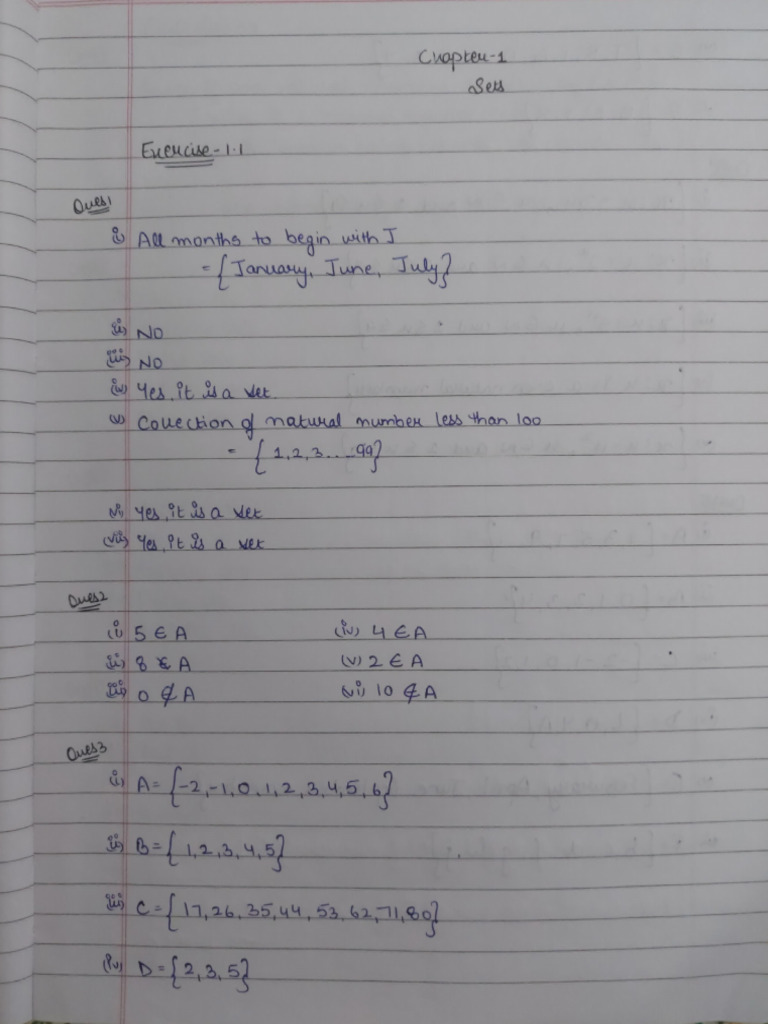 Chapter-1
Sets
Exercise-1.1
Ques1
i) All months to begin with J
= {January, June, July}
ii) NO
iii) NO
iv) Yes, it is a set
v) Collection of natural number less than 100
= {1, 2, 3 .... 99}
vi) Yes, it is a set
(vii) Yes, it is a set
Ques2
(i) 5 ∈ A (iv) 4 ∈ A
ii) 8 ∉ A (v) 2 ∈ A
iii) 0 ∉ A (vi) 10 ∉ A
Ques3
i) A = {-2, -1, 0, 1, 2, 3, 4, 5, 6}
ii) B = {1, 2, 3, 4, 5}
iii) C = {17, 26, 35, 44, 53, 62, 71, 80}
(iv) D = {2, 3, 5}